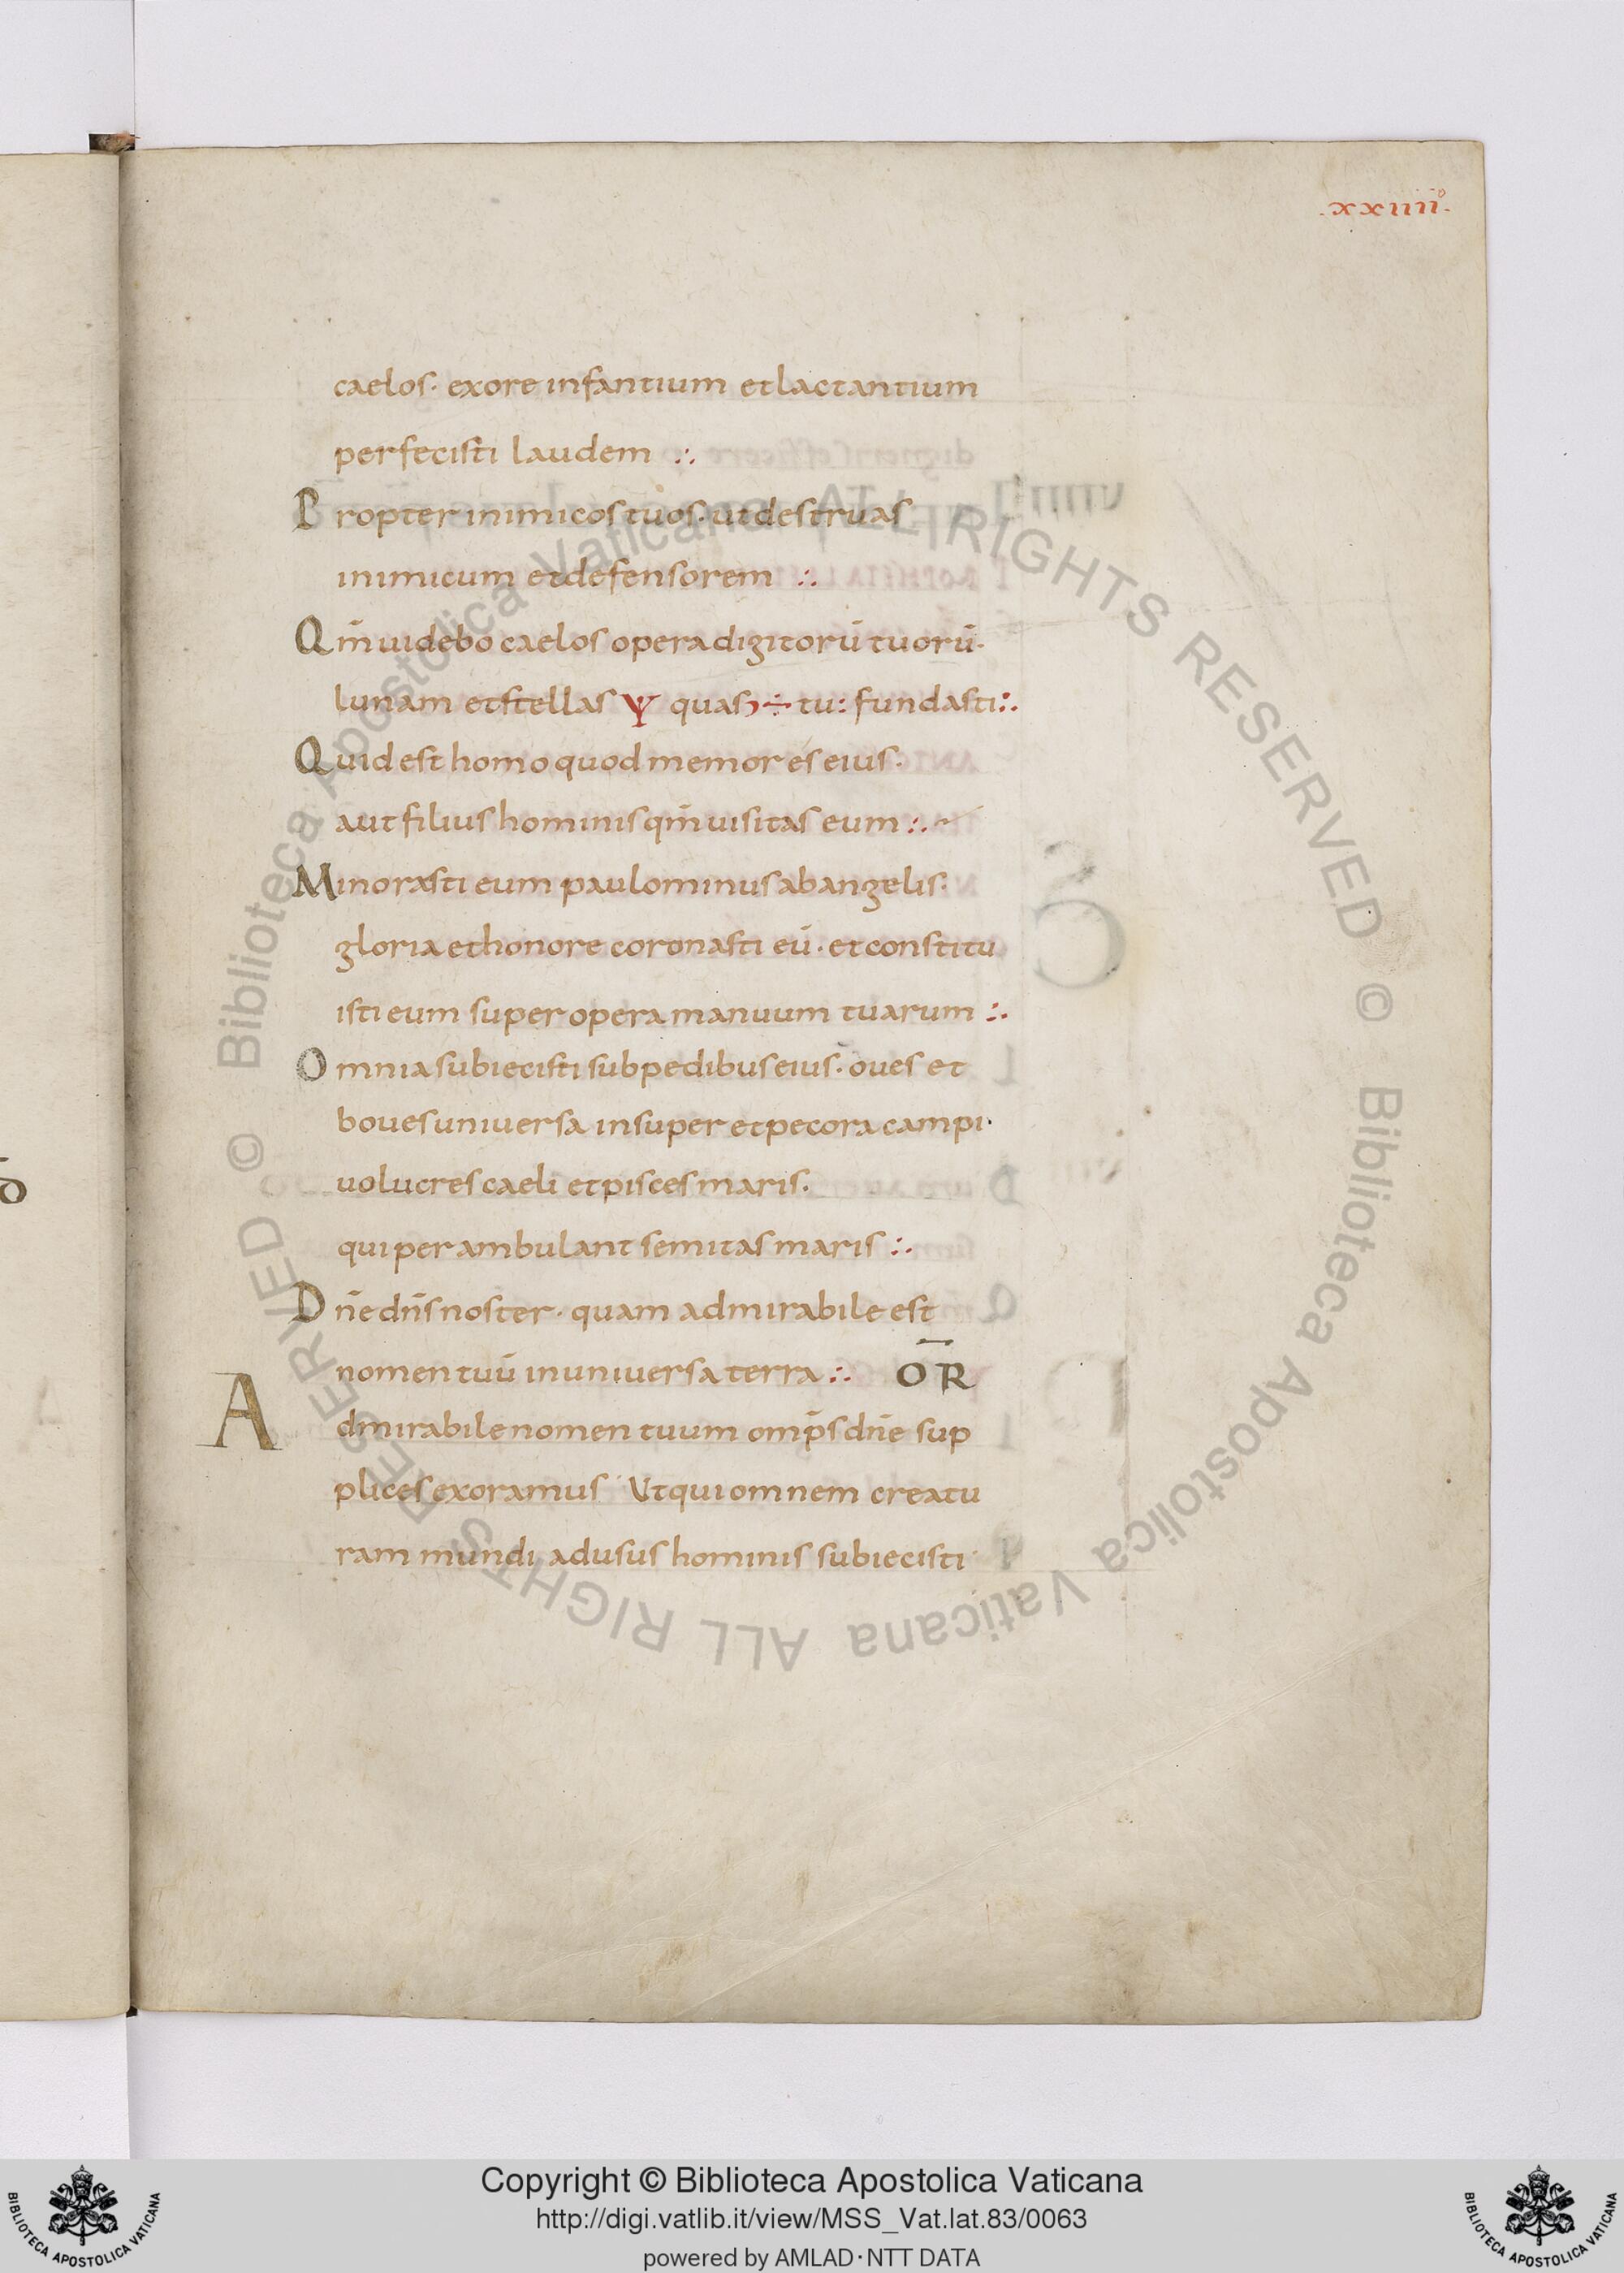 .xxiiii°.
caelos· exore infantium etlactantium
perfecisti laudem :.
Propter inimicos tuos· utdestruas
inimicum etdefensorem :.
Qm̄ uidebo caelos opera digitorū tuorū·
lunam etstellas Ψ quas ÷ tu: fundasti:.
Quid est homo quod memor es eius·
aut filius hominis qm̄ uisitas eum :.
Minorasti eum paulominus abangelis·
gloria ethonore coronasti eū· etconstitu
isti eum super opera manuum tuarum :.
Omnia subiecisti subpedibus eius· oues et
boues uniuersa insuper etpecora campi·
uolucres caeli etpisces maris·
qui perambulant semitas maris :.
Dn̄e dn̄s noster· quam admirabile est
nomen tuū inuniuersa terra :. OR̄
Admirabile nomen tuum omp̄s dn̄e sup
plices exoramus· Ut qui omnem creatu
ram mundi adusus hominis subiecisti·
© Biblioteca Apostolica Vaticana ALL RIGHTS RESERVED © Biblioteca Apostolica Vaticana ALL RIGHTS RESERVED
BIBLIOTECA APOSTOLICA VATICANA
Copyright © Biblioteca Apostolica Vaticana
http://digi.vatlib.it/view/MSS_Vat.lat.83/0063
powered by AMLAD·NTT DATA
BIBLIOTECA APOSTOLICA VATICANA